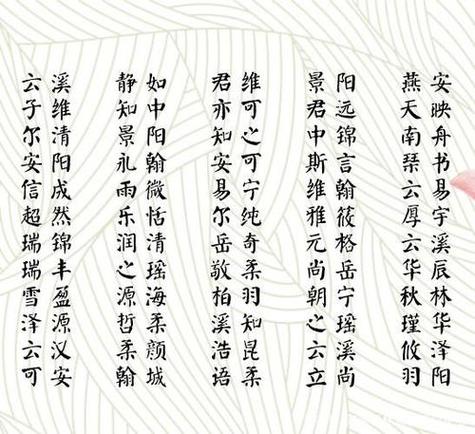 云溪 静如 君维 景阳 燕安
子维 知中 亦可 君远 天映
尔清 景阳 知之 中锦 南舟
安阳 礼翰 安可 斯言 琹书
信成 雨微 易宁 维翰 云易
超然 乐恬 尔纯 雅筱 厚宇
瑞锦 润清 岳奇 元格 云溪
瑞丰 之瑶 敬柔 尚岳 华辰
雪盈 源海 柏羽 朝宁 秋林
泽源 哲柔 溪知 之瑶 瑾华
云汉 柔颜 浩昆 云溪 攸泽
可安 翰城 语柔 立尚 羽阳